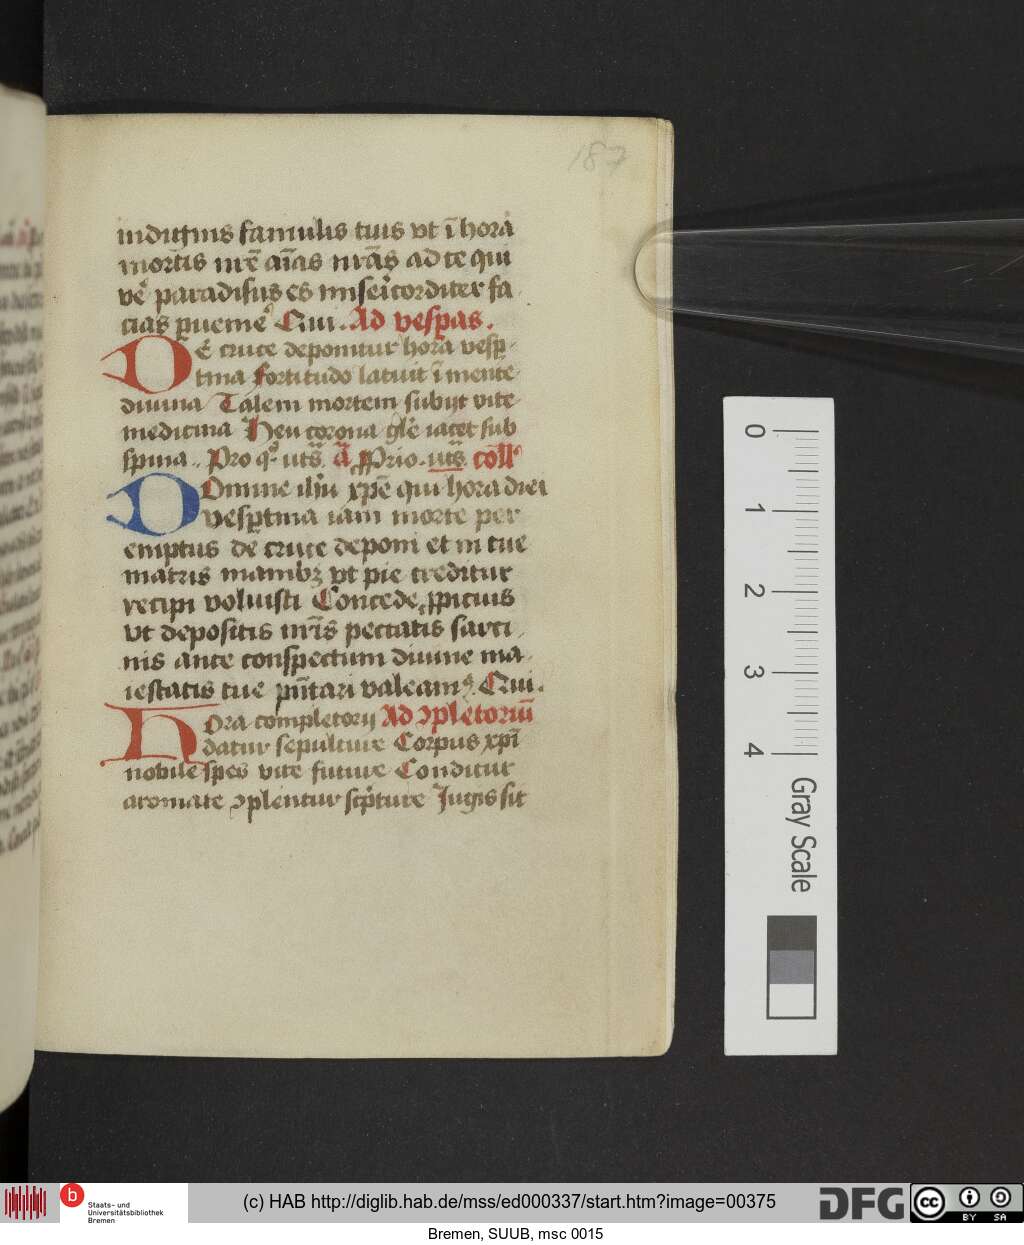 187
indignis famulis tuis vt ī hora
mortis nr̄e aīas nrās ad te qui
vē paradisus es misericorditer fa
cias puenie Qui. Ad vespas.
DE cruce deponitur hora vesp
tina fortitudo latuit ī mente
diuina Talem mortem subijt vite
medicina Heu corona glē iacet sub
spina. Pro q utš. a Prio. uts. coll
DOmine ihū xpē qui hora diei
vesptina iam morte per
emptus de cruce deponi et in tue
matris manibꝫ vt pie creditur
recipi voluisti Concede ꝓpicius
vt depositis nrīs peccatis sarci
nis ante conspectum diuine ma
iestatis tue pn̄tari valeam Qui.
HOra completorij Ad ↄpletoriū
datur sepulture Corpus xpī
nobile spes vite future Conditur
aromate ↄplentur scpture Jugis sit
0
1
2
3
4
Gray Scale
b
Staats- und
Universitätsbibliothek
Bremen
(c) HAB http://diglib.hab.de/mss/ed000337/start.htm?image=00375
DFG
cc
BY SA
Bremen, SUUB, msc 0015